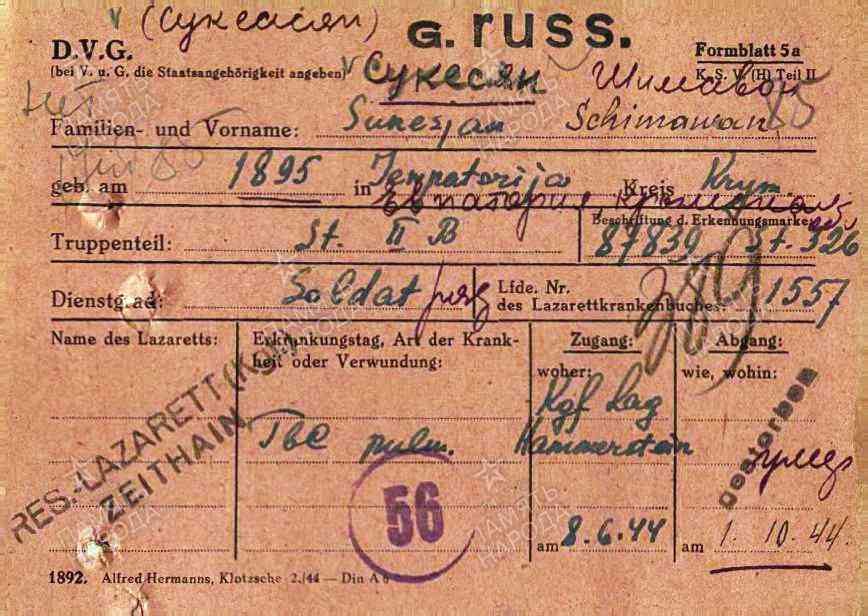 (Сукесиян)
G. russ.
D.V.G.
Formblatt 5a
(bei V. u. G. die Staatsangehörigkeit angeben)
K. S. V. (H) Teil II
Сукесян Шимавон
85
Familien- und Vorname: Sukesjan Schimawan
geb. am 1895 in Jewpatorija Kreis Krym
Евпатория
Beschriftung d. Erkennungsmarke:
Truppenteil: St. II B 87839 St. 326
Dienstgrad: Soldat ряд
Lfde. Nr.
des Lazarettkrankenbuches: 1557
Name des Lazaretts:
Erkrankungstag, Art der Krank-
heit oder Verwundung:
Zugang:
Abgang:
woher:
wie, wohin:
RES.-LAZARETT
ZEITHAIN
Tbc pulm.
Kgf Lag
Hammerstein
gestorben
умер
56
am 8.6.44
am 1. 10. 44.
1892. Alfred Hermanns, Klotzsche 2./44 — Din A 6
ПАМЯТЬ
НАРОДА